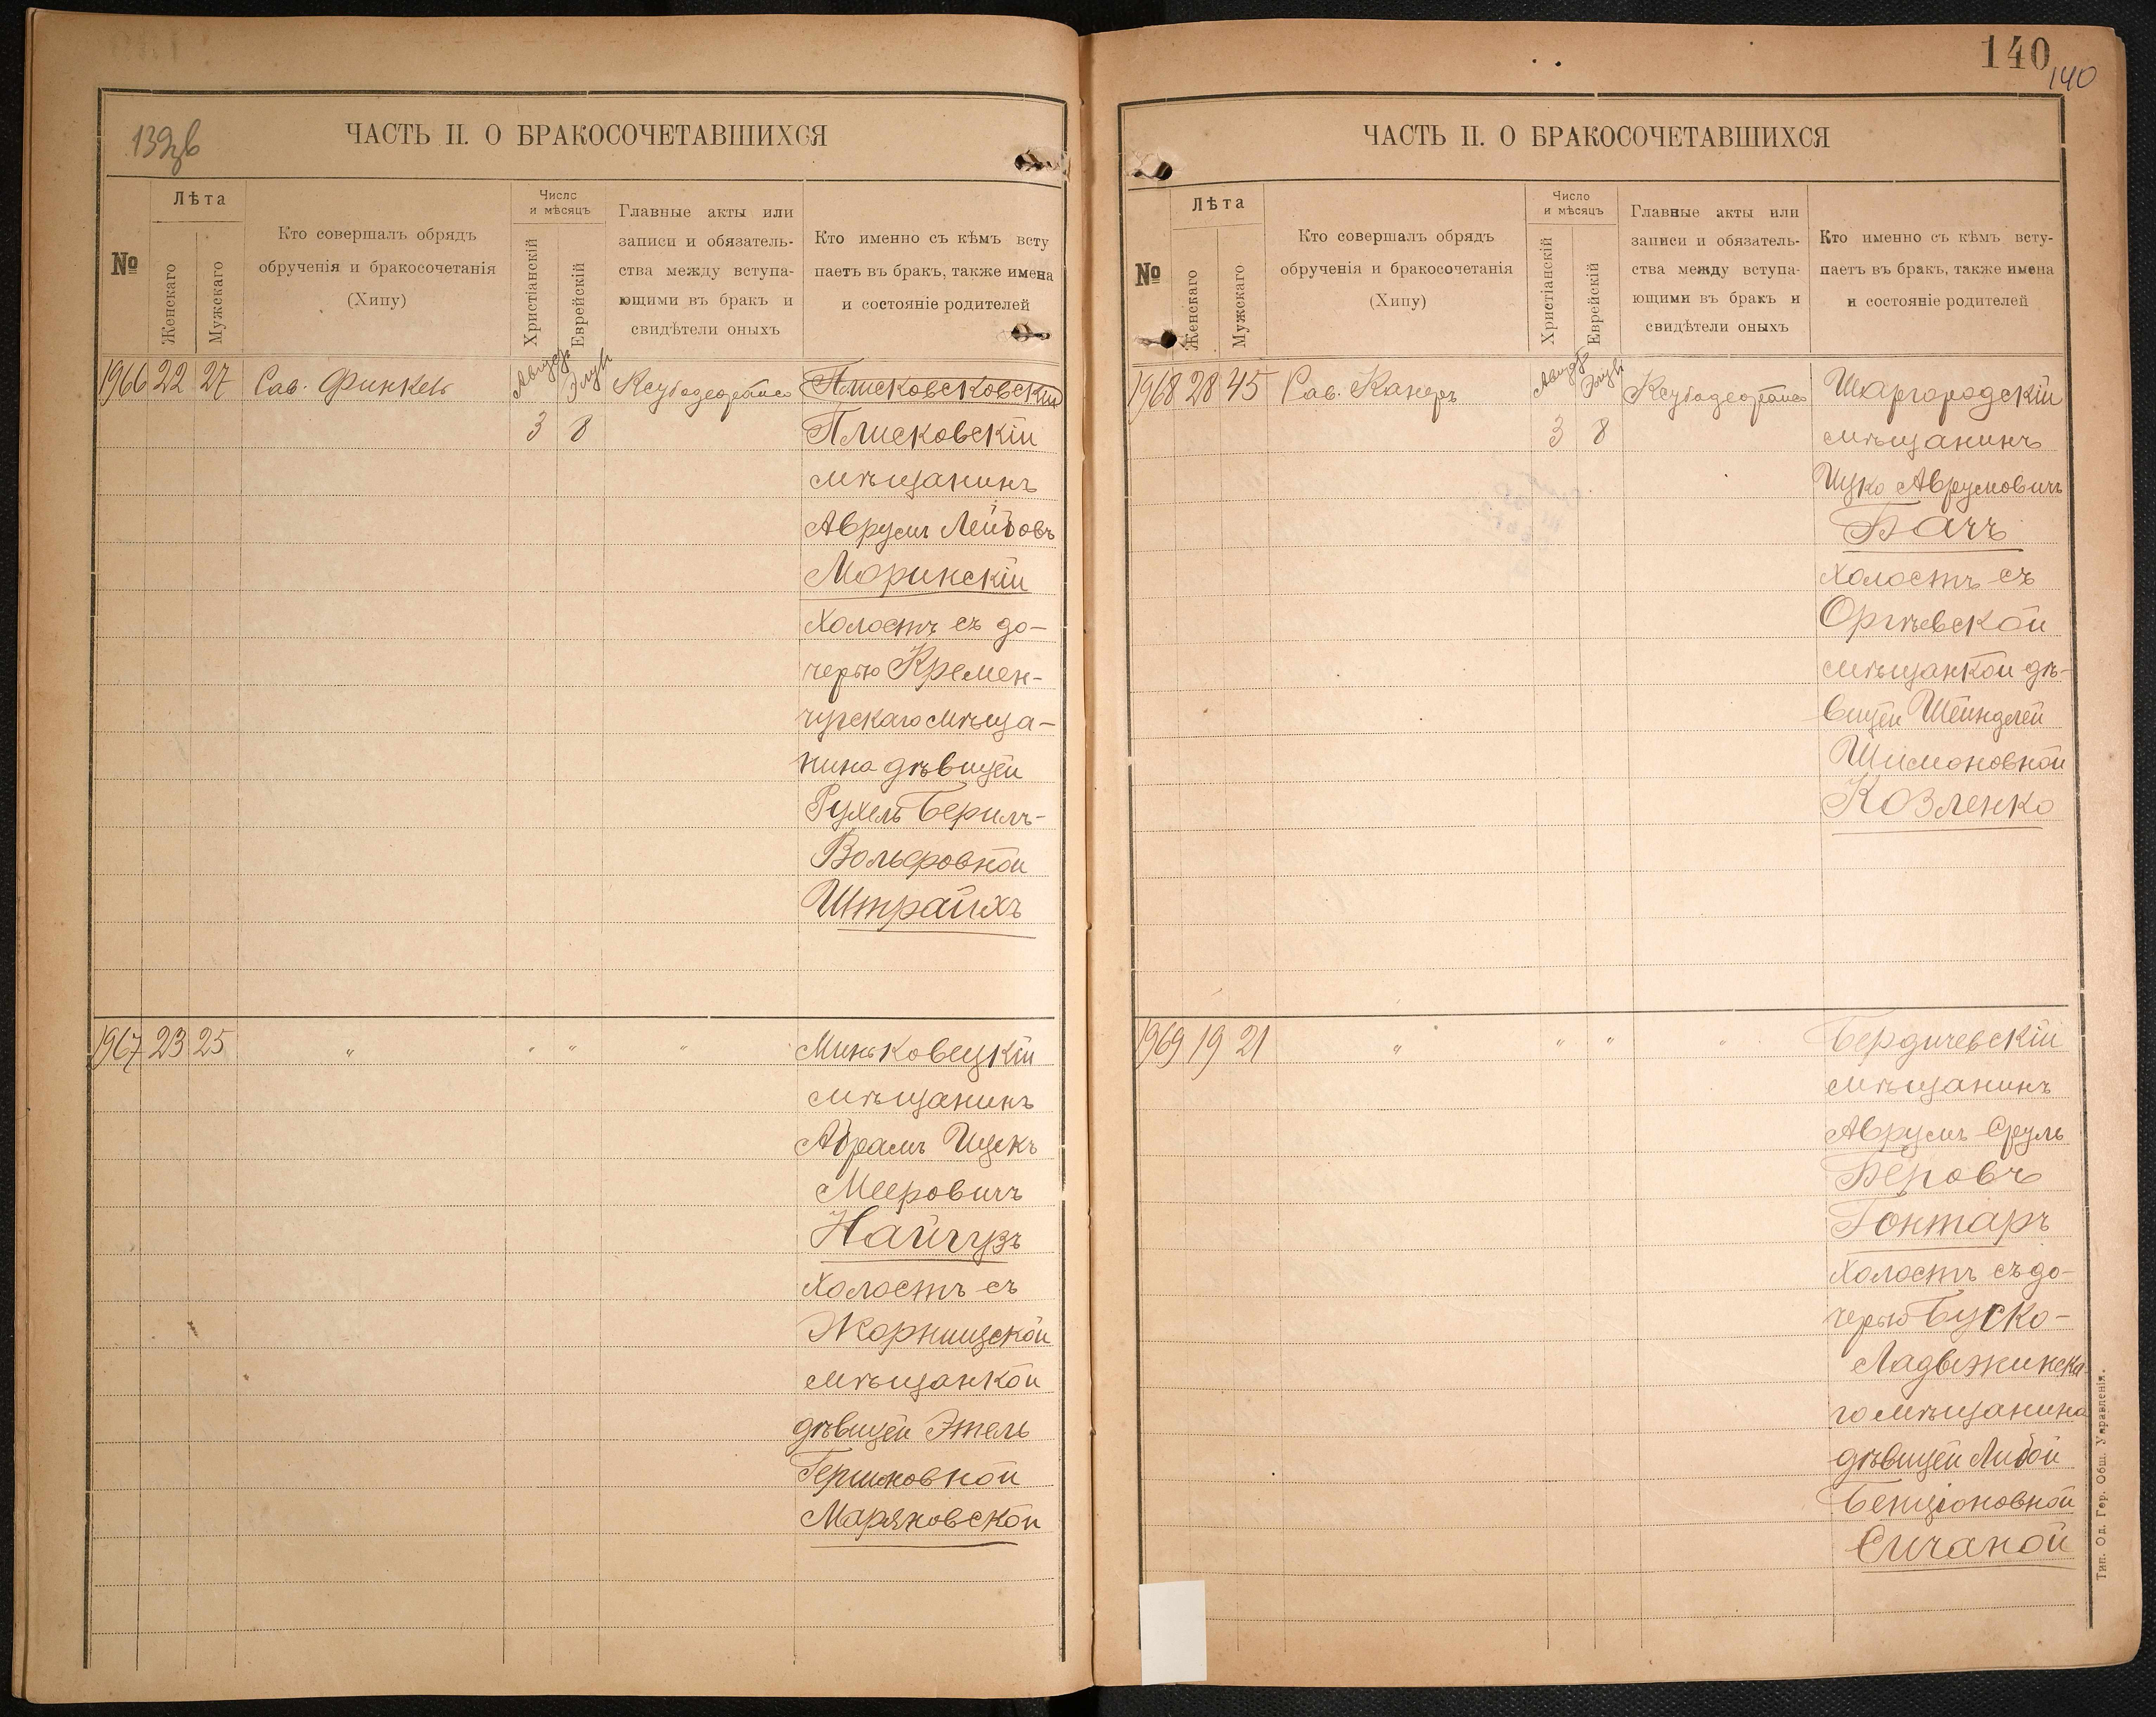 139 об
ЧАСТЬ II. О БРАКОСОЧЕТАВШИХСЯ
№
Лѣта
Женскаго
Мужскаго
Кто совершалъ обрядъ
обрученія и бракосочетанія
(Хипу)
Число
и мѣсяцъ
Христіанскій
Еврейскій
Главные акты или
записи и обязатель-
ства между вступа-
ющими въ бракъ и
свидѣтели оныхъ
Кто именно съ кѣмъ всту
паетъ въ бракъ, также имена
и состояніе родителей
1966 22 27 Рав. Финкель
Августъ Элулъ
3 8
Плисковсковскій
Плисковскій
мѣщанинъ
Аврумъ Лейбовъ
Моринскій
холостъ съ до-
черью Кремен-
чугскаго мѣща-
нина дѣвицей
Рухель Берилъ-
Вольфовной
Штрайхъ
1967 23 25 " " " "
Миньковецкій
мѣщанинъ
Абрамъ Ицекъ
Мееровичъ
Найгузъ
холостъ съ
Жорнищской
мѣщанкой
дѣвицей Этель
Гершковной
Маряновской
140
140
ЧАСТЬ II. О БРАКОСОЧЕТАВШИХСЯ
№
Лѣта
Женскаго
Мужскаго
Кто совершалъ обрядъ
обрученія и бракосочетанія
(Хипу)
Число
и мѣсяцъ
Христіанскій
Еврейскій
Главные акты или
записи и обязатель-
ства между вступа-
ющими въ бракъ и
свидѣтели оныхъ
Кто именно съ кѣмъ всту-
паетъ въ бракъ, также имена
и состояніе родителей
1968 28 45 Рав. Канеръ
Августъ Элулъ
3 8
Шаргородскій
мѣщанинъ
Ицко Аврумовичъ
Бачъ
холостъ съ
Оргѣевской
мѣщанкой дѣ-
вицей Шейндлей
Шимоновной
Козленко
1969 19 21 " " " "
Бердичевскій
мѣщанинъ
Аврумъ Сруль
Беровъ
Гонтаръ
холостъ съ до-
черью Буско-
Ладыжинска
го мѣщанина
дѣвицей Либой
Бенціоновной
Сичаной
Тип. Од. Гор. Общ. Управленія.